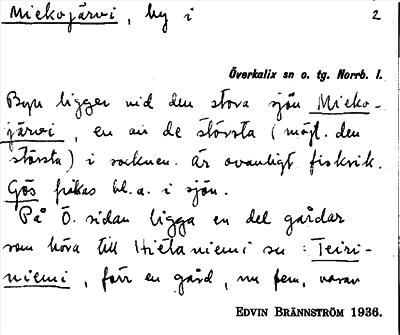 Miekojärvi, by i 2
Överkalix sn o. tg. Norrb. l.
Byn ligger vid den stora sjön Mieko-
järvi, en av de största (möjl. den
största) i socknen. Är ovanligt fiskrik.
Gös fiskas bl.a. i sjön.
På Ö. sidan ligga en del gårdar
som höra till Hietaniemi sn: Teiri-
niemi, förr en gård, nu fem, varav
EDVIN BRÄNNSTRÖM 1936.